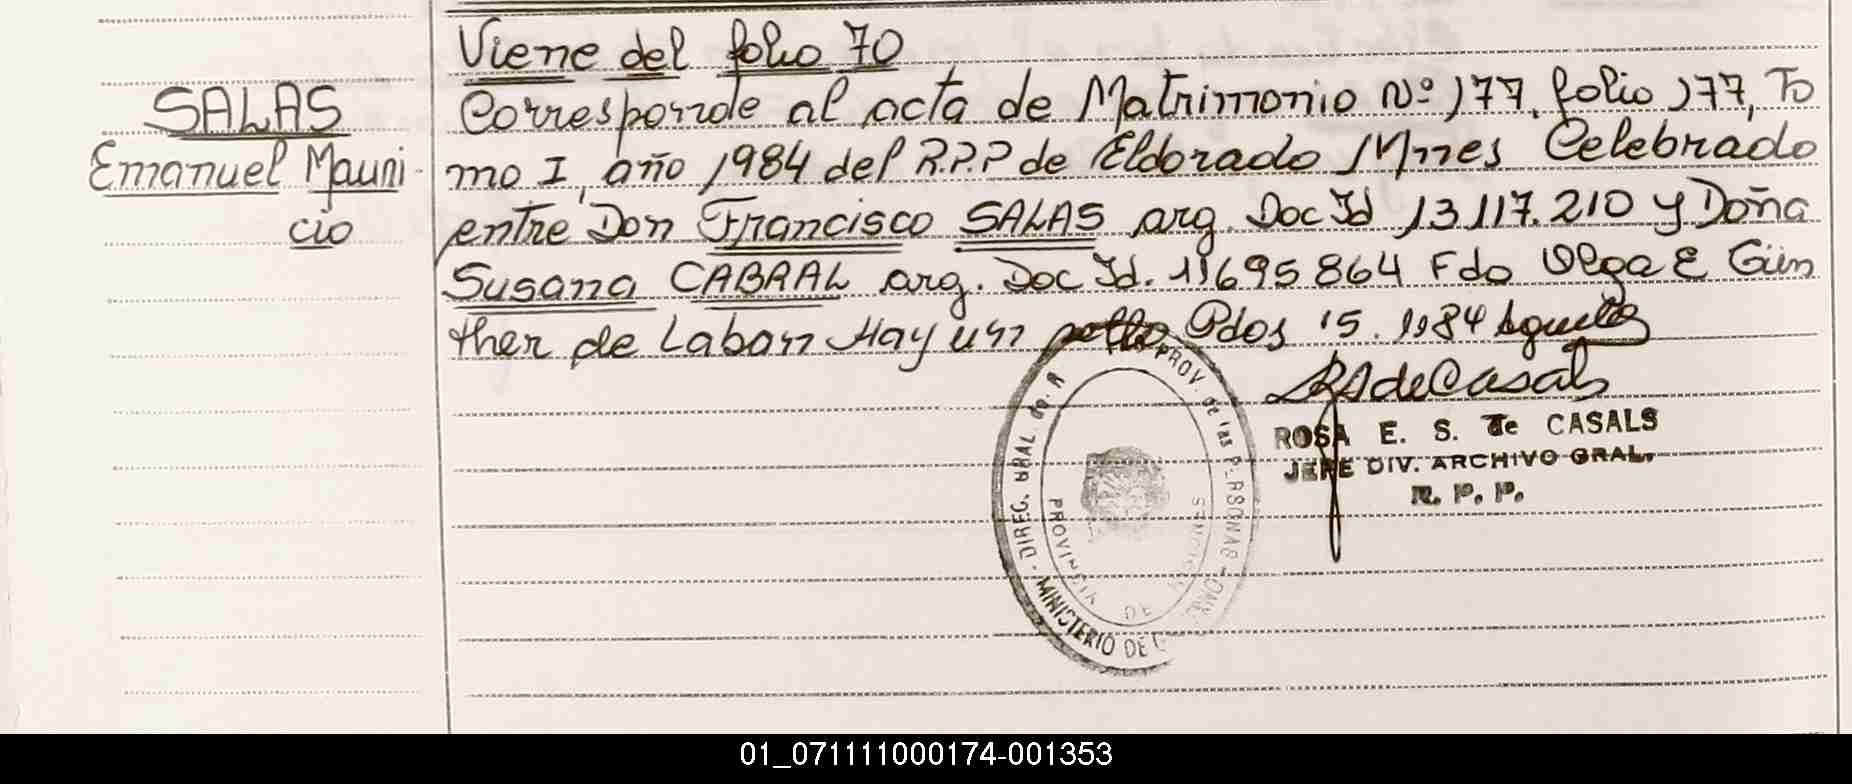 Viene del folio 70
SALAS
Emanuel Mauri-
cio
Corresponde al acta de Matrimonio Nº 177, folio 177, To
mo I, año 1984 del R.P.P de Eldorado Mnes Celebrado
entre Don Francisco SALAS arg. Doc Id 13.117.210 y Doña
Susana CABRAL arg. Doc Id. 11695864 Fdo Olga E Gün
ther de Laban Hay un sello Pdos 15.
ROSA E. S. de CASALS
JEFE DIV. ARCHIVO GRAL.
R. P. P.
DIREC. GRAL PROV. de las PERSONAS
MINISTERIO DE
PROVINCIA DE MISIONES
01_071111000174-001353